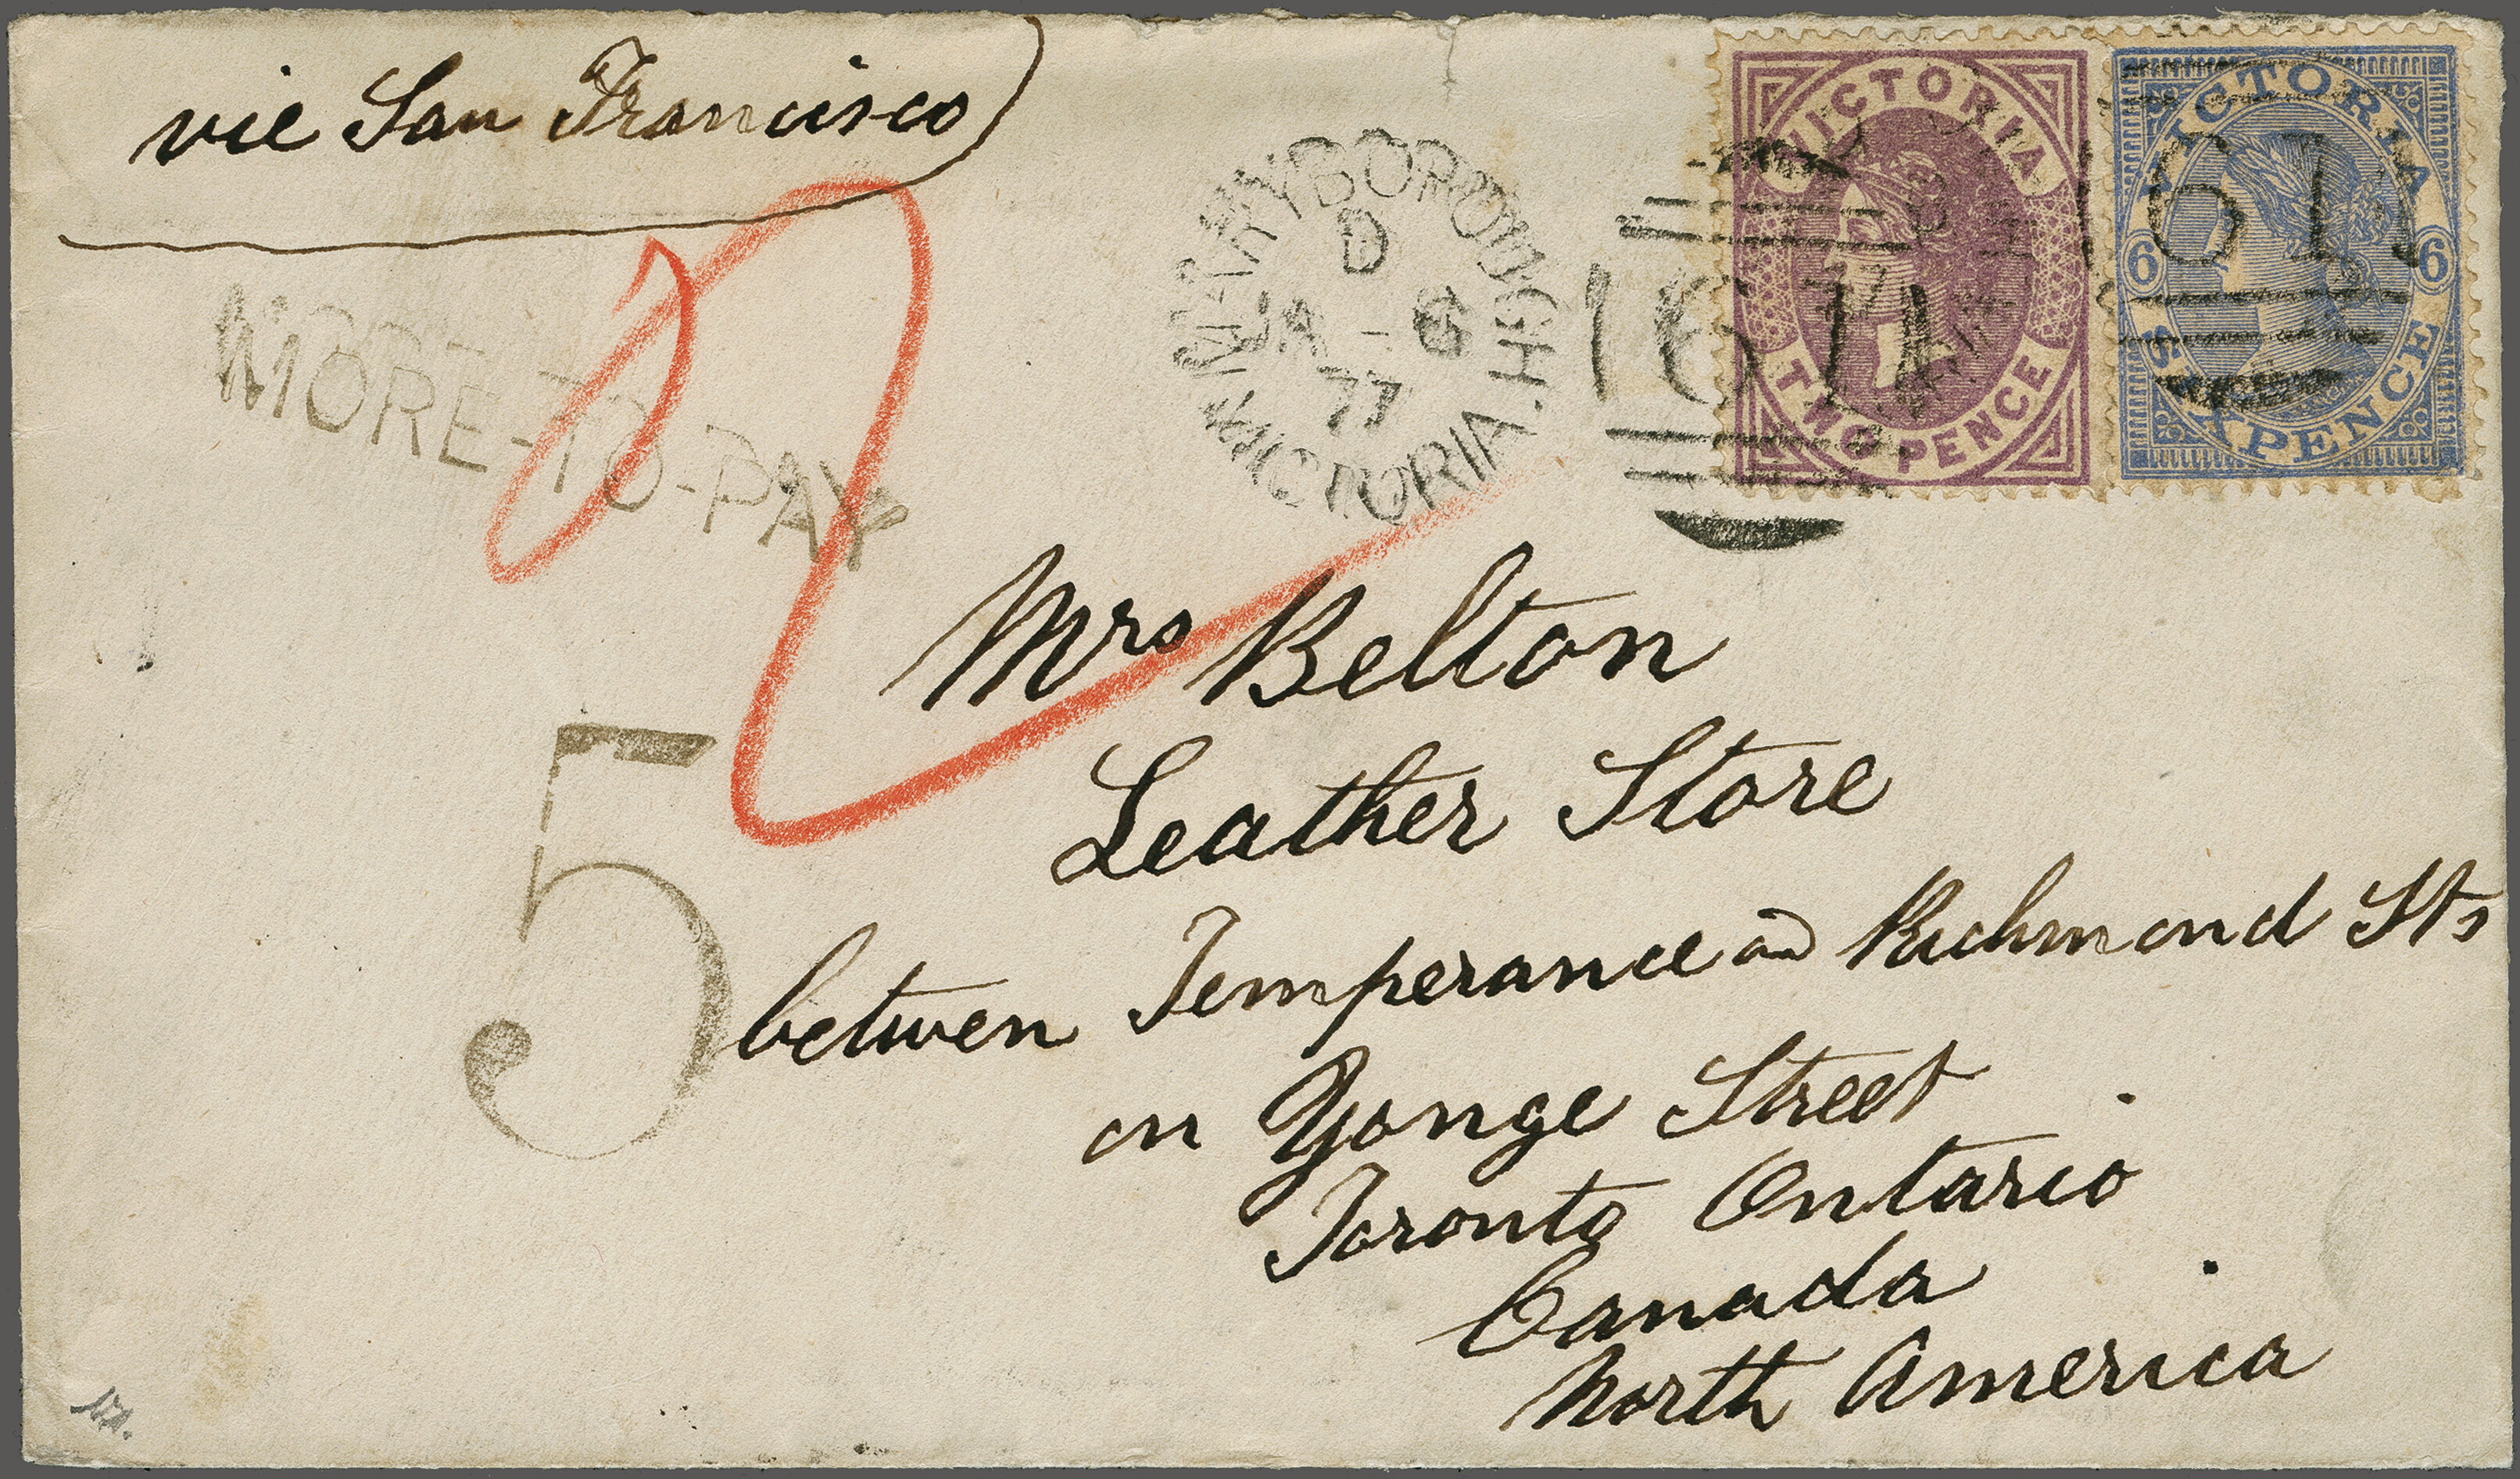 vie San Francisco
VICTORIA
TWO PENCE
VICTORIA
6 6
SIXPENCE
MARYBOROUGH
D
JA - 6
77
VICTORIA
161
161
MORE-TO-PAY
2
5
Mrs Belton
Leather Store
betwen Temperance and Richmond Sts
on Yonge Street
Toronto Ontario
Canada
North America